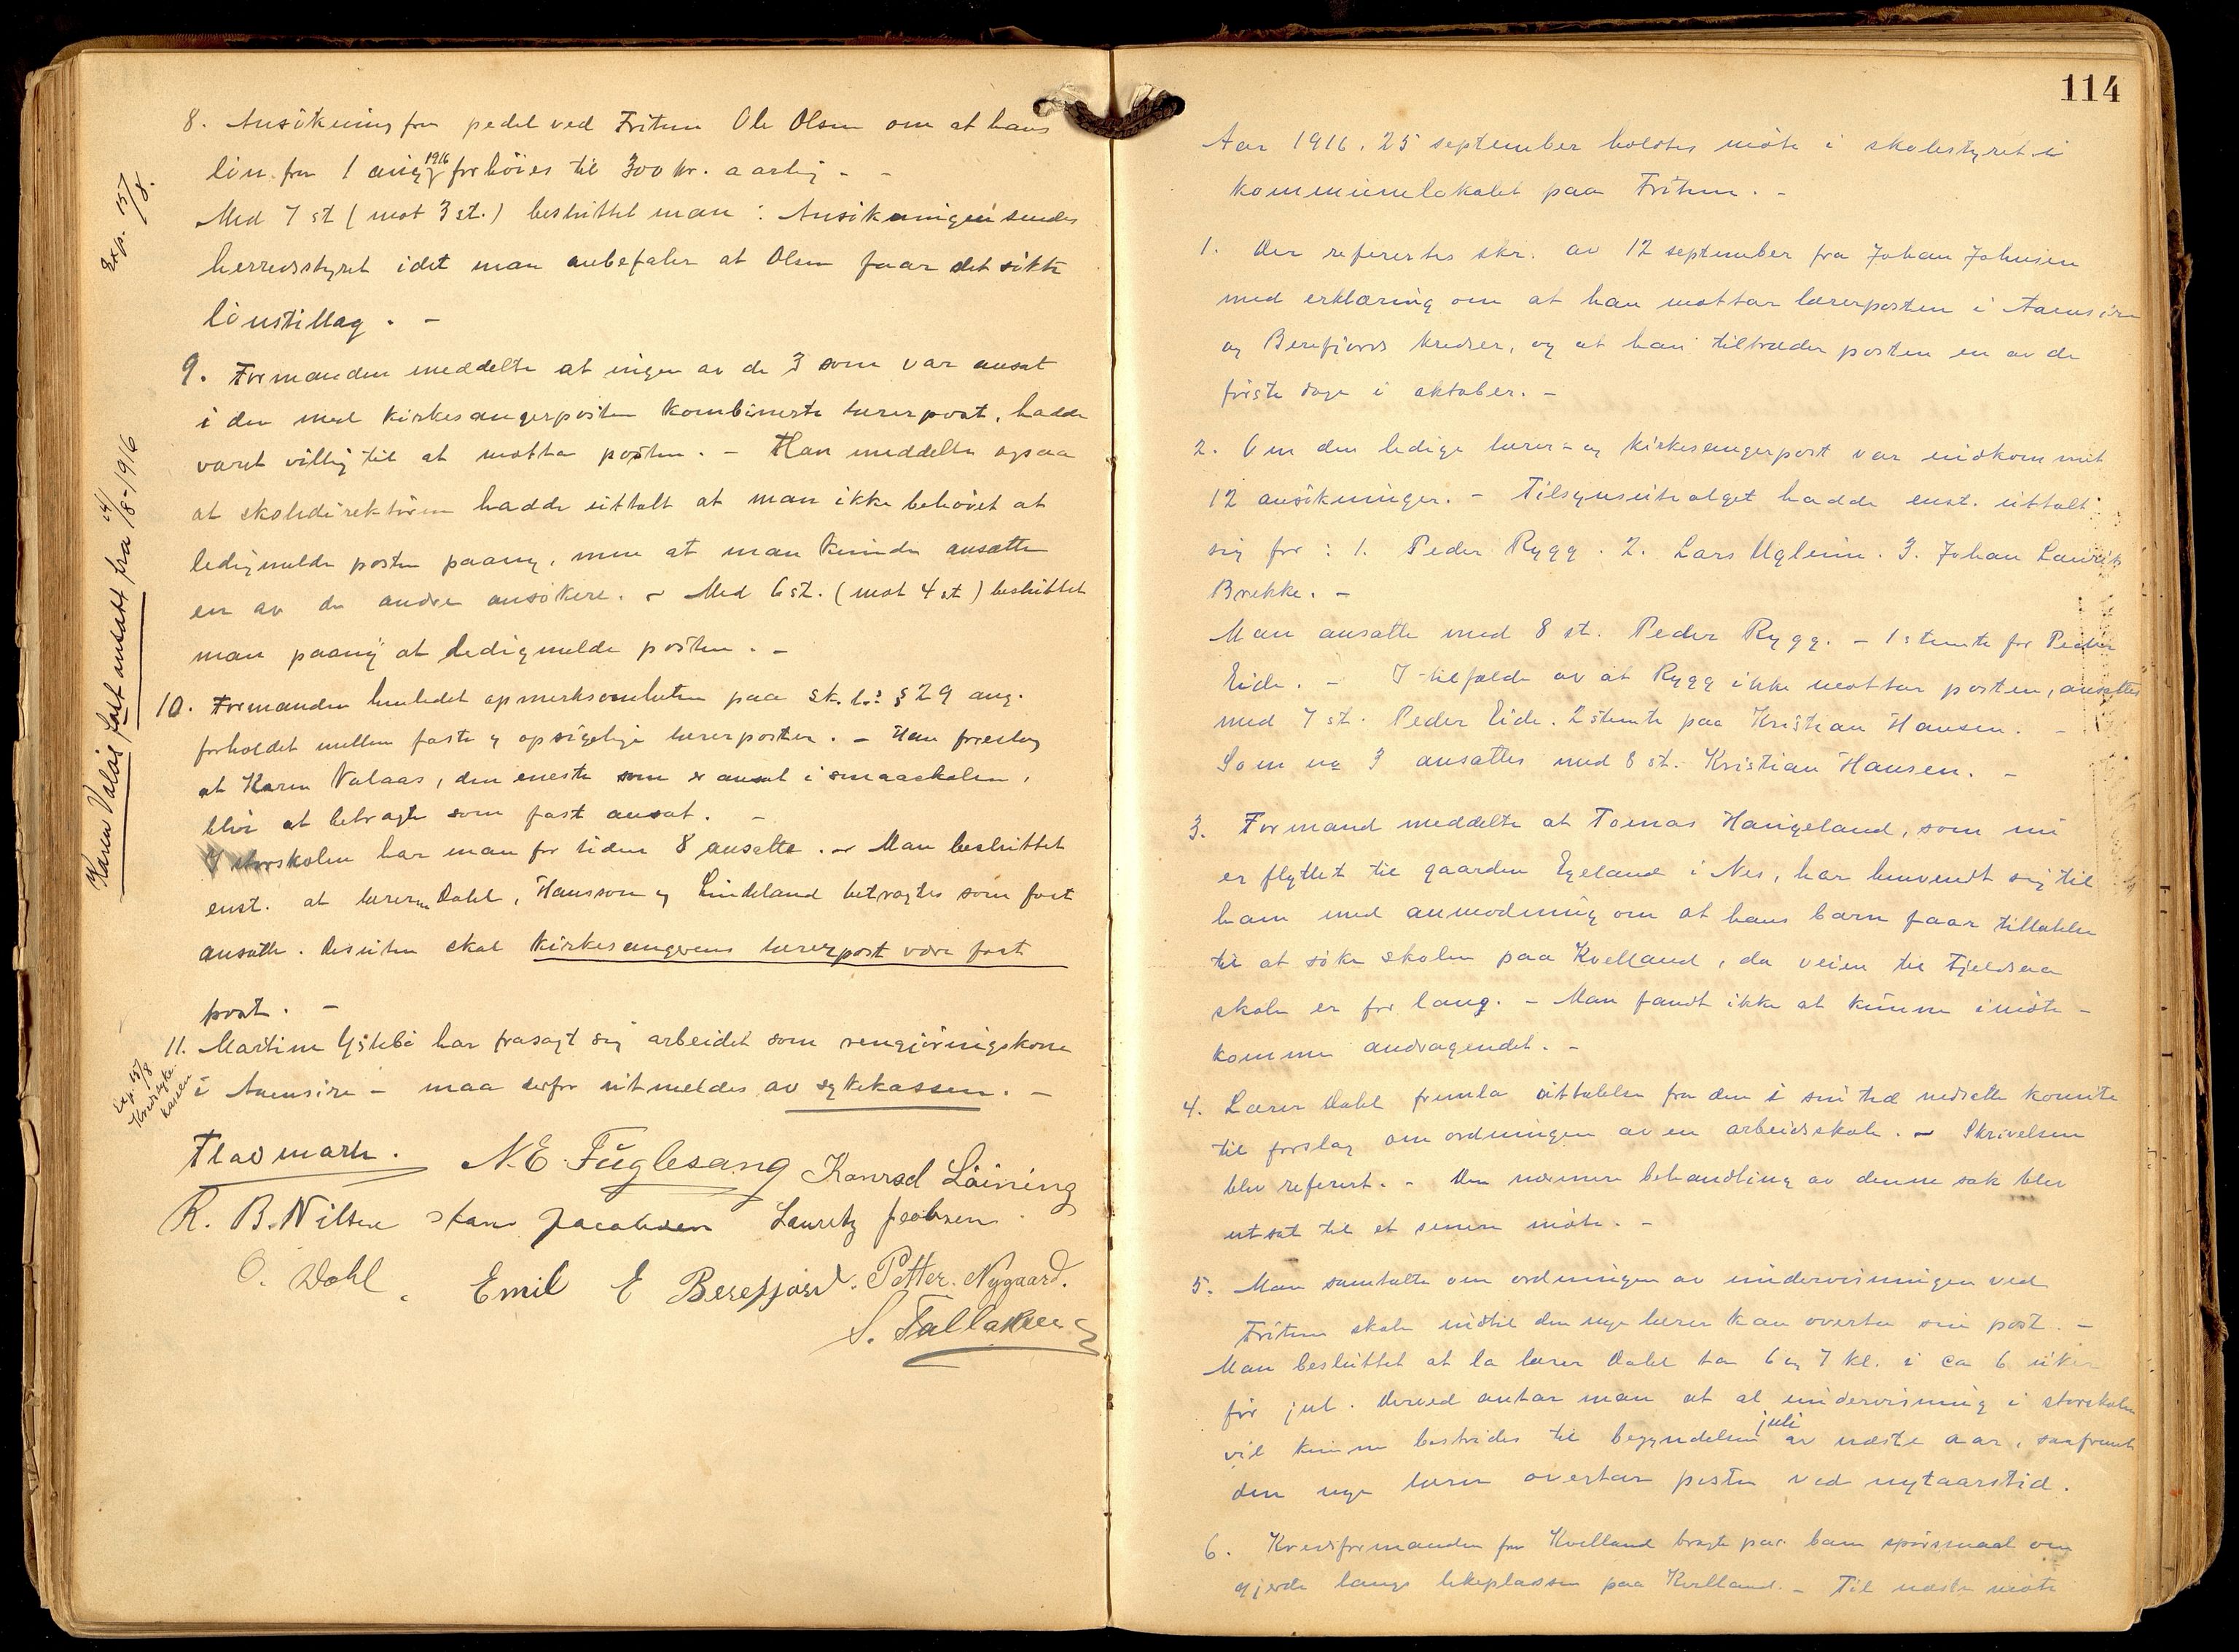 8. Ansökning fra pedel ved Fritun Ole Olsen om at hans
lön fra 1 aug 1916 forhöies til 300 kr. aarlig. -
Exp. 15/8.
Med 7 st (mot 3 st.) besluttet man: Ansökningen sendes
herredsstyret idet man anbefaler at Olsen faar det sökte
lönstillæg. -
9. Formanden meddelte at ingen av de 3 som var ansat
i den med kirkesangerposten kombinerte lærerpost, hadde
været villig til at motta posten. - Han meddelte ogsaa
at skoledirektören hadde uttalt at man ikke behövet at
ledigmelde posten paany, men at man kunde ansætte
en av de andre ansökere. - Med 6 st. (mot 4 st) besluttet
man paany at ledigmelde posten. -
Karen Valås fast ansatt fra 14/8-1916
10. Formanden henledet opmerksomheten paa sk.l.s § 29 ang.
forholdet mellem faste og opsigelige lærerposter. - Han foreslog
at Karen Valaas, den eneste som er ansat i smaaskolen,
blir at betragte som fast ansat. -
I storskolen har man for tiden 8 ansatte. - Man besluttet
enst. at lærerne Dahl, Hansson og Lindeland betragtes som fast
ansatte. Desuten skal kirkesangerens lærerpost være fast
post. -
11. Martine Ystebö har frasagt sig arbeidet som rengjöringskone
i Aaensire - maa derfor utmeldes av sykekassen. -
Exp. 15/8
Kredssyke-
kassen
Fladmark. N.E. Fuglesang Konrad Löining
R. B. Nilsen Jacobsen Lauritz Jacobsen
O. Dahl. Emil E Berefjord. Petter Nygaard.
S. Tallaksen
114
Aar 1916, 25 september holdtes möte i skolestyret i
kommunelokalet paa Fritun. -
1. Der refertes skr. av 12 september fra Johan Johnsen
med erklæring om at han mottar lærerposten i Aaensire
og Berefjords kredser, og at han tiltræder posten en av de
förste dage i oktober. -
2. Om den ledige lærer- og kirkesangerpost var indkommet
12 ansökninger. - Tilsynsutvalget hadde enst. uttalt
sig for: 1. Peder Rygg. 2. Lars Ugleim. 3. Johan Laurits
Brekke. -
Man ansatte med 8 st. Peder Rygg. - 1 stemte for Peder
Eide. - I tilfælde av at Rygg ikke mottar posten, ansattes
med 7 st. Peder Eide. 2 stemte paa Kristian Hansen. -
Som no 3 ansattes med 8 st. Kristian Hansen. -
3. Formand meddelte at Tomas Haugeland, som nu
er flyttet til gaarden Egeland i Nes, har henvendt sig til
ham med anmodning om at hans barn faar tillatelse
til at söke skolen paa Kvelland, da veien til Fjeldsaa
skole er for lang. - Man fandt ikke at kunne imöte-
komme andragendet. -
4. Lærer Dahl fremla uttalelse fra den i sin tid nedsatte komite
til forslag om ordningen av en arbeidsskole. - Skrivelsen
blev referert. - Den nærmere behandling av denne sak blev
utsat til et senere möte. -
5. Man samtalte om ordningen av undervisningen ved
Fritun skole indtil den nye lærer kan overta sin post. -
Man besluttet at la lærer Dahl ta 6 og 7 kl. i ca 6 uker
för jul. Derved antar man at al undervisning i storskolen
vil kunne bestrides til begyndelsen juli av næste aar, saafremt
den nye lærer overtar posten ved nytaarstid.
6. Kredsformanden for Kvelland bragte paa bane spörsmaal om
gjerde langs lekeplassen paa Kvelland. - Til næste möte